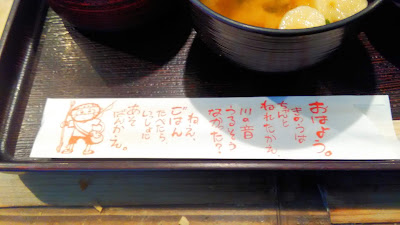 おはよう。
きのうは
ちゃんと
ねれたかえ
川の音
うるそう
なかった?
ねえ、
ごはん
たべたら
いっしょに
あそ
ばんかえ。